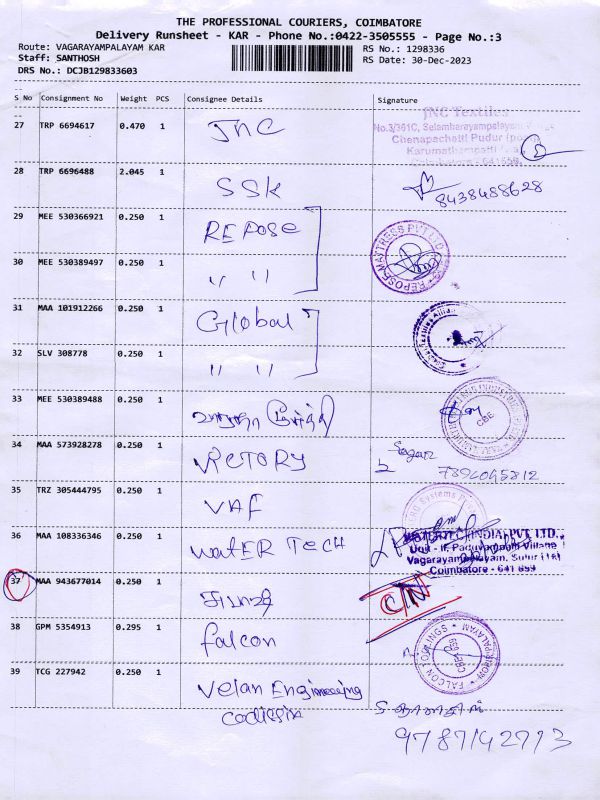 THE PROFESSIONAL COURIERS, COIMBATORE
Delivery Runsheet - KAR - Phone No.:0422-3505555 - Page No.:3
Route: VAGARAYAMPALAYAM KAR RS No.: 1298336
Staff: SANTHOSH RS Date: 30-Dec-2023
DRS No.: DCJB129833603
S No Consignment No Weight PCS Consignee Details Signature
27 TRP 6694617 0.470 1 JNC
JNC Textiles
No.3/361C, Selambarayampalayam
Chenapachatti Pudur
Karumathampatti
641659
28 TRP 6696488 2.045 1 SSK 8438488628
29 MEE 530366921 0.250 1 REPOSE
REPOSE MATTRESS PVT LTD
30 MEE 530389497 0.250 1 " "
31 MAA 101912266 0.250 1 Global
32 SLV 308778 0.250 1 " "
33 MEE 530389488 0.250 1
CBE
34 MAA 573928278 0.250 1 VICTORY Sagar
7892045812
35 TRZ 305444795 0.250 1 VAF
36 MAA 108336346 0.250 1 WATER TECH
WATERTEC (INDIA) PVT LTD.,
Unit - II, Paduvampalli Village
Vagarayampalayam, Sulur (Tk)
Coimbatore - 641 659
37 MAA 943677014 0.250 1 C/N
38 GPM 5354913 0.295 1 falcon
FALCON TOOLINGS
39 TCG 227942 0.250 1 Velan Engineering
codissia
9787142713